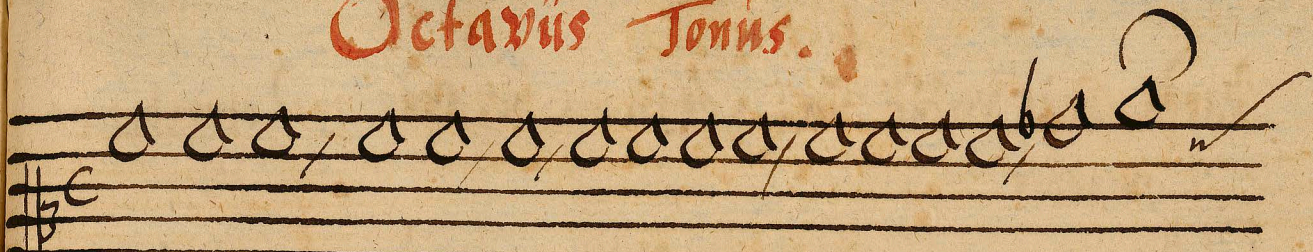 Octavus Tonus.